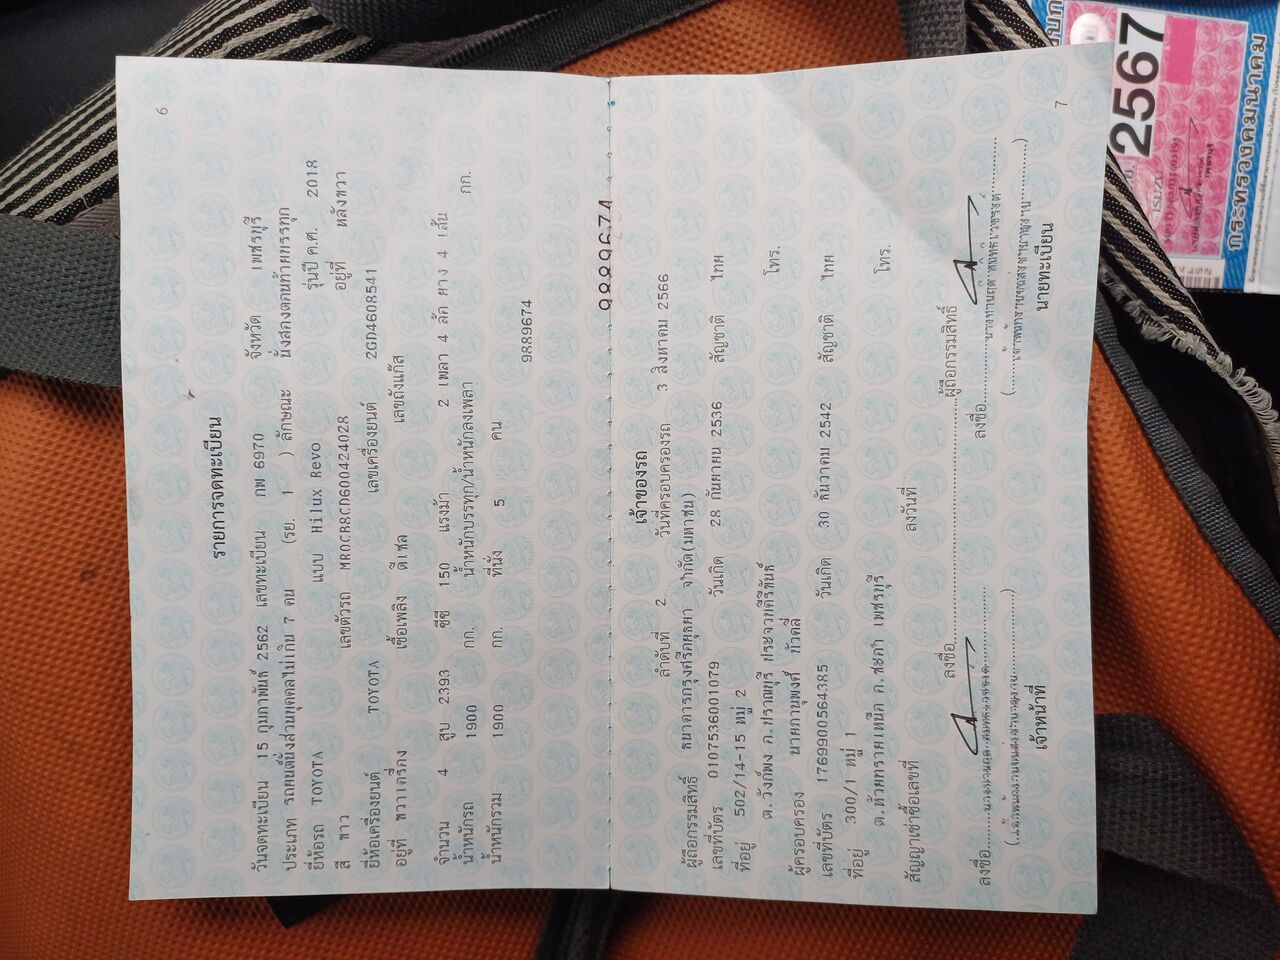 6
รายการจดทะเบียน
วันจดทะเบียน 15 กุมภาพันธ์ 2562 เลขทะเบียน กพ 6970 จังหวัด เพชรบุรี
ประเภท รถยนต์นั่งส่วนบุคคลไม่เกิน 7 คน (รย. 1 ) ลักษณะ นั่งสองตอนท้ายบรรทุก
ยี่ห้อรถ TOYOTA แบบ Hilux Revo รุ่นปี ค.ศ. 2018
สี ขาว เลขตัวรถ MR0CB8CD600424028 อยู่ที่ หลังขวา
ยี่ห้อเครื่องยนต์ TOYOTA เลขเครื่องยนต์ 2GD4608541
อยู่ที่ ขวาเครื่อง เชื้อเพลิง ดีเซล เลขถังแก๊ส
จำนวน 4 สูบ 2393 ซีซี 150 แรงม้า 2 เพลา 4 ล้อ ยาง 4 เส้น
น้ำหนักรถ 1900 กก. น้ำหนักบรรทุก/น้ำหนักลงเพลา กก.
น้ำหนักรวม 1900 กก. ที่นั่ง 5 คน
9889674
9889674
เจ้าของรถ
ลำดับที่ 2 วันที่ครอบครองรถ 3 สิงหาคม 2566
ผู้ถือกรรมสิทธิ์ ธนาคารกรุงศรีอยุธยา จำกัด(มหาชน)
เลขที่บัตร 0107536001079 วันเกิด 28 กันยายน 2536 สัญชาติ ไทย
ที่อยู่ 502/14-15 หมู่ 2
ต.วังก์พง อ.ปราณบุรี ประจวบคีรีขันธ์ โทร.
ผู้ครอบครอง นายภานุพงศ์ บัวคลี่
เลขที่บัตร 1769900564385 วันเกิด 30 ธันวาคม 2542 สัญชาติ ไทย
ที่อยู่ 300/1 หมู่ 1
ต.ห้วยทรายเหนือ อ.ชะอำ เพชรบุรี โทร.
สัญญาเช่าซื้อเลขที่ ลงวันที่
ลงชื่อ ผู้ถือกรรมสิทธิ์
ลงชื่อ ลงชื่อ
เจ้าหน้าที่ นายทะเบียน
7
2567
ISUZU
กระทรวงคมนาคม